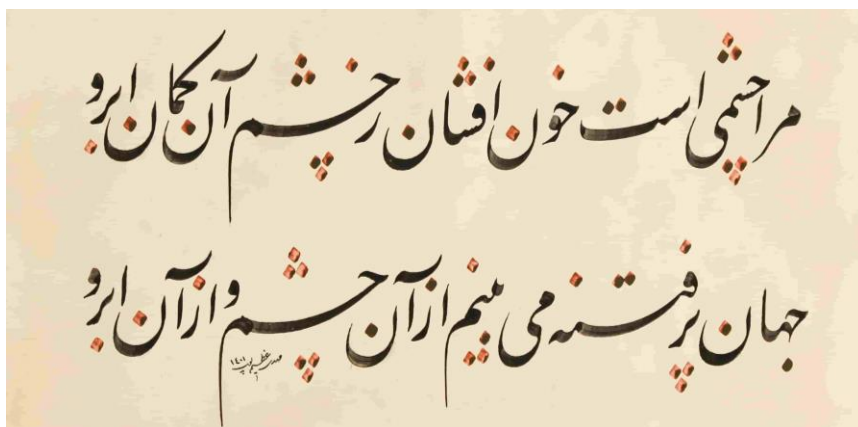 مرا چشمی است خون افشان ز چشم آن کمان ابرو
جهان پر فتنه می بینم از آن چشم و از آن ابرو
۱۴۰۱